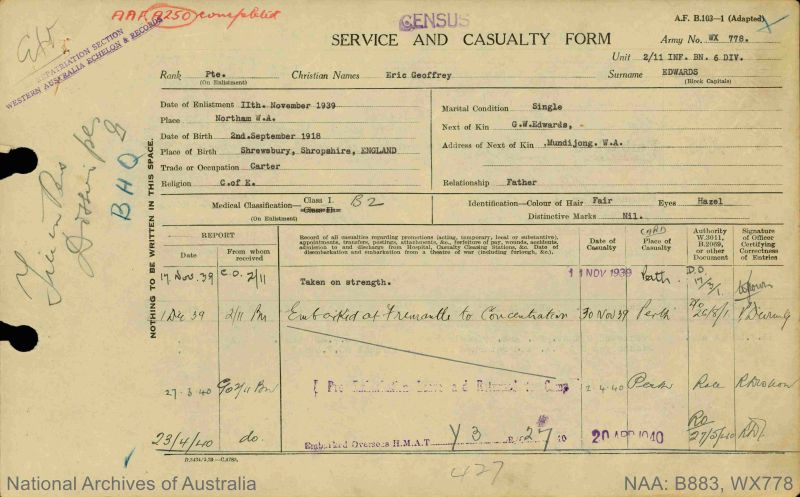 AAF A250 completed
CENSUS
A.F. B.103—1 (Adapted)
SERVICE AND CASUALTY FORM
Army No. WX 778.
REPATRIATION SECTION
WESTERN AUSTRALIA ECHELON & RECORDS
Unit 2/11 INF. BN. 6 DIV.
Rank Pte. Christian Names Eric Geoffrey Surname EDWARDS
(On Enlistment) (Block Capitals)
Date of Enlistment IIth. November 1939
Place Northam W.A.
Date of Birth 2nd.September 1918
Place of Birth Shrewsbury, Shropshire, ENGLAND
Trade or Occupation Carter
Religion C.of E.
Marital Condition Single
Next of Kin G.W.Edwards,
Address of Next of Kin .Mundijong. W.A.
Relationship Father
Medical Classification— Class I. B2
Class II.
(On Enlistment)
Identification—Colour of Hair Fair Eyes Hazel
Distinctive Marks Nil.
NOTHING TO BE WRITTEN IN THIS SPACE.
BHQ
REPORT
Date
From whom received
Record of all casualties regarding promotions (acting, temporary, local or substantive), appointments, transfers, postings, attachments, &c., forfeiture of pay, wounds, accidents, admission to and discharge from Hospital, Casualty Clearing Stations, &c. Date of disembarkation and embarkation from a theatre of war (including furlough, &c.).
Date of Casualty
CARD
Place of Casualty
Authority W.3011, B.2069, or other Document
Signature of Officer Certifying Correctness of Entries
17 Nov. 39 C.O. 2/11 Taken on strength. 11 NOV 1939 Perth D.O. 17/3/1
1 Dec 39 2/11 Bn Embarked at Fremantle to Concentration 30 Nov 39 Perth 26/8/1
27-3-40 2/11 Bn Pre Embarkation Leave and Returned to Camp 2-4-40 Perth
23/4/40 do. Embarked Overseas H.M.A.T Y3 27 20 APR 1940 Ro 27/5/40
427
National Archives of Australia
NAA: B883, WX778